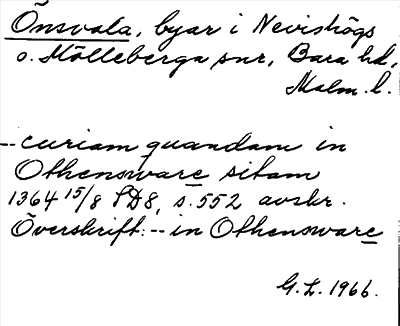 Önsvala, byar i Nevishögs
o. Mölleberga snr, Bara hd,
Malm. l.
-- curiam quandam in
Othensware sitam
1364 15/8 SD8, s. 552 avskr.
Överskrift: -- in Othensware
G. L. 1966.